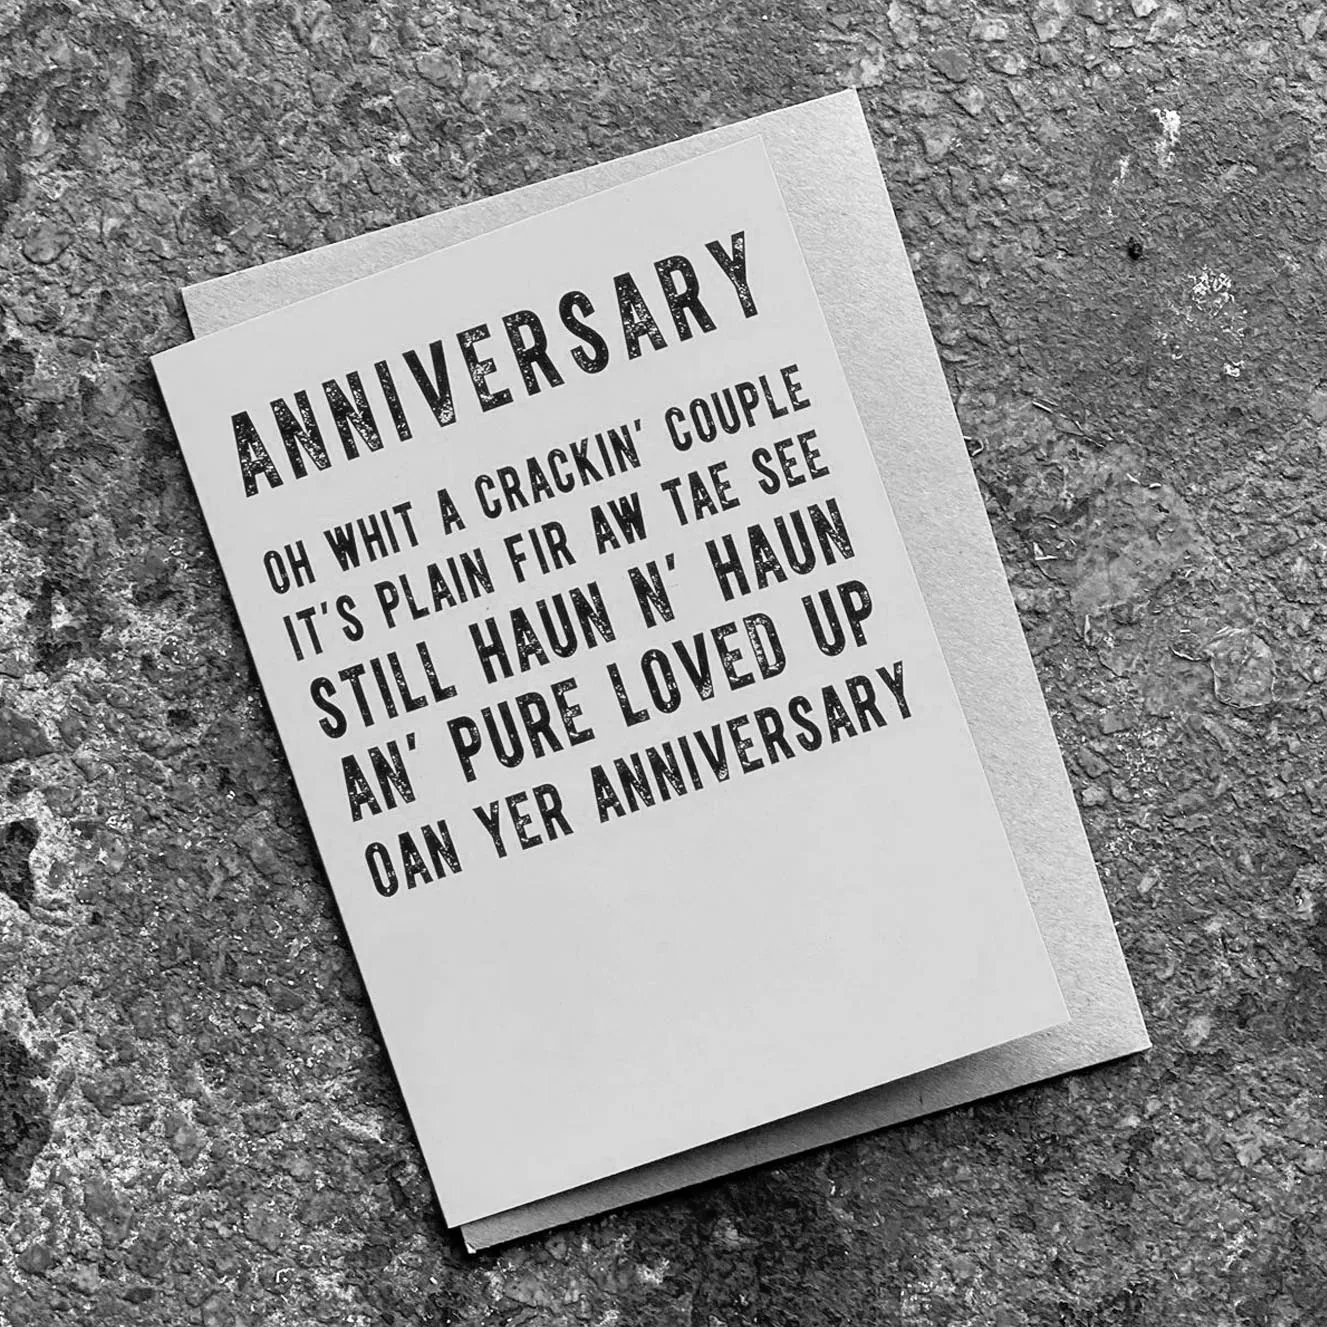 ANNIVERSARY
OH WHIT A CRACKIN' COUPLE
IT'S PLAIN FIR AW TAE SEE
STILL HAUN N' HAUN
AN' PURE LOVED UP
OAN YER ANNIVERSARY